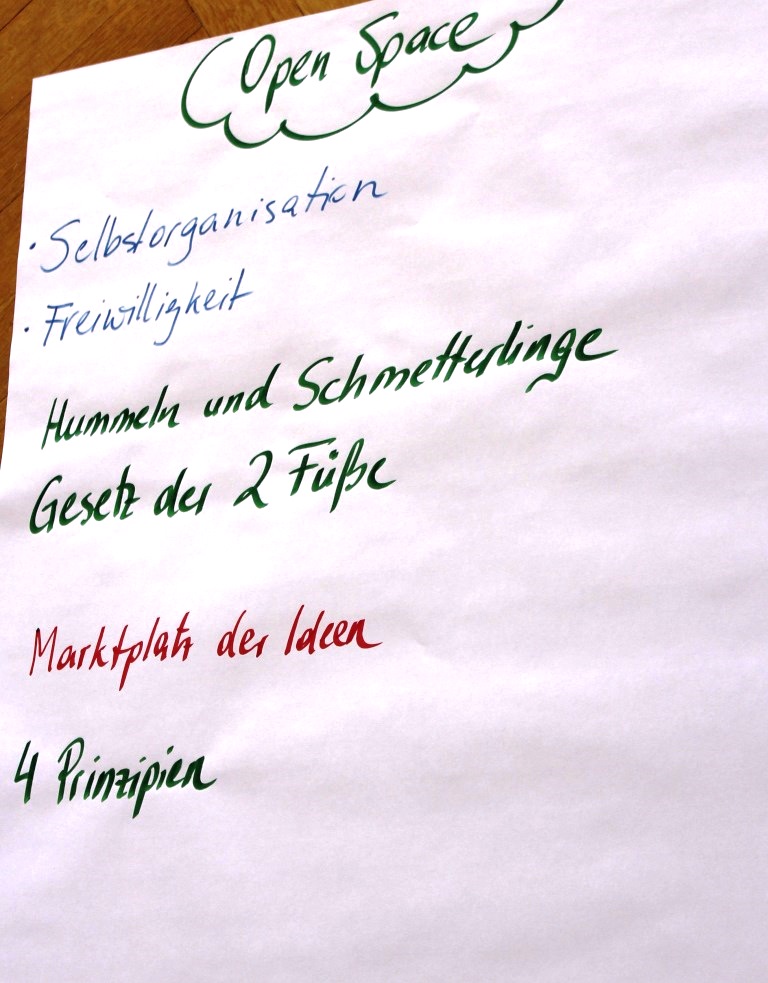 Open Space
· Selbstorganisation
· Freiwilligkeit
Hummeln und Schmetterlinge
Gesetz der 2 Füße
Marktplatz der Ideen
4 Prinzipien